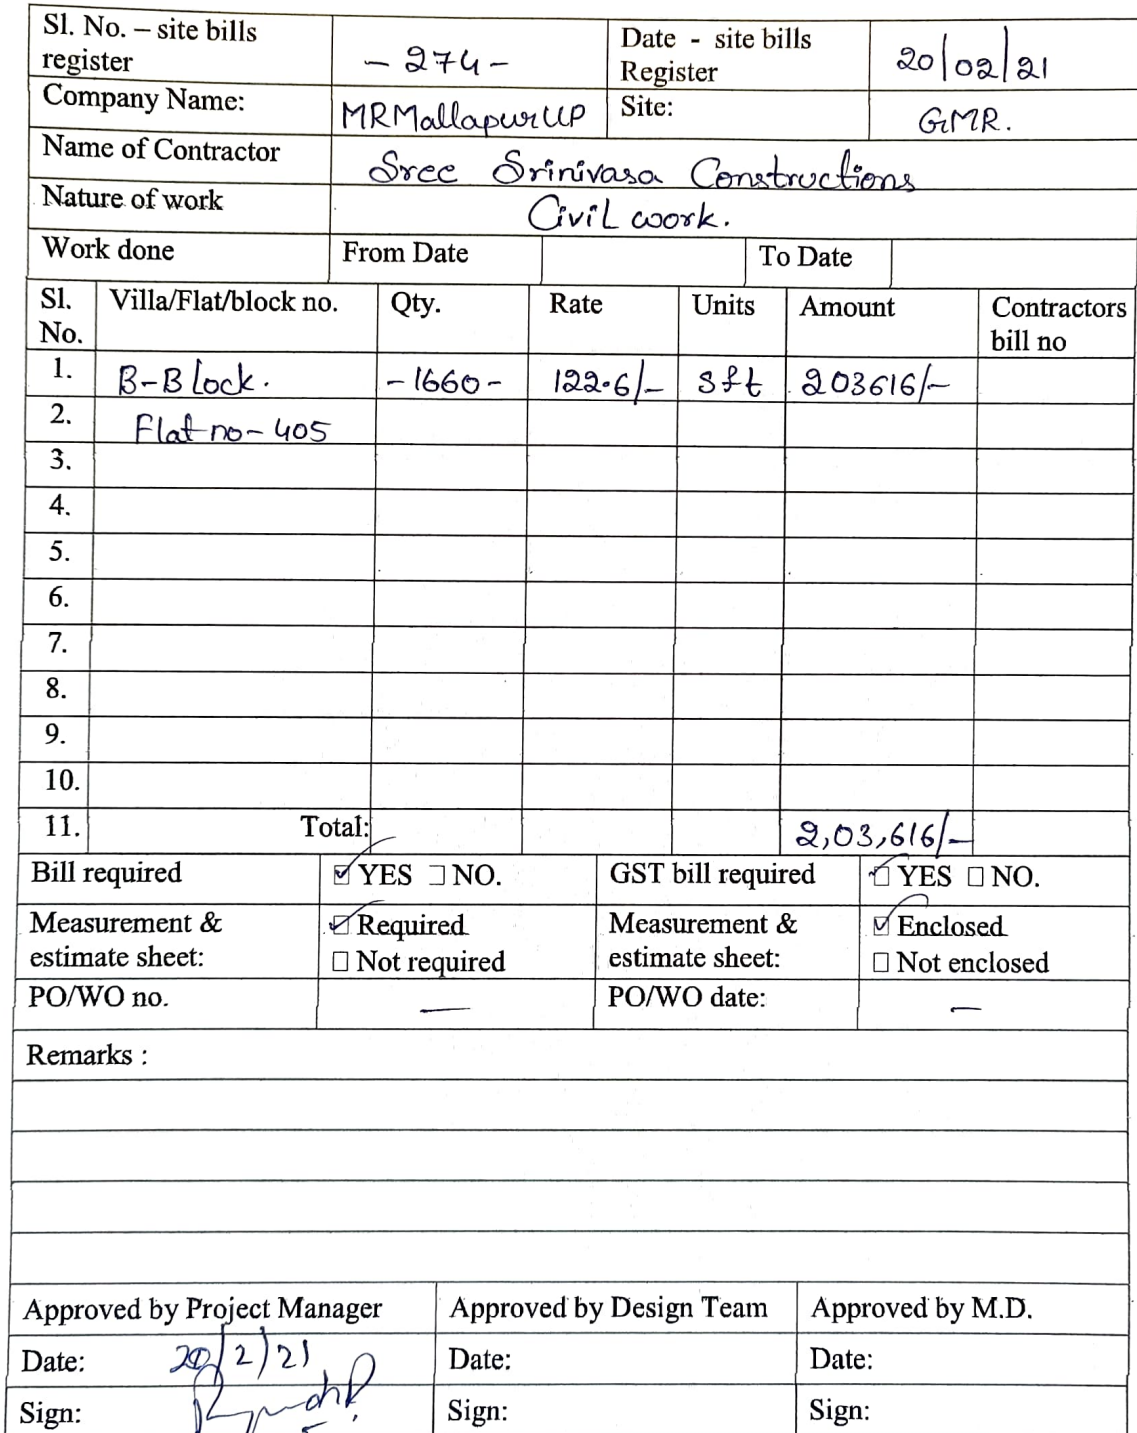 Sl. No. – site bills register - 274 - Date - site bills Register 20/02/21
Company Name: MRMallapur LLP Site: GMR.
Name of Contractor Sree Srinivasa Constructions
Nature of work Civil work.
Work done From Date To Date
Sl. No. Villa/Flat/block no. Qty. Rate Units Amount Contractors bill no
1. B-Block. -1660- 122.6/- Sft 203616/-
2. Flat no-405
3.
4.
5.
6.
7.
8.
9.
10.
11. Total: 2,03,616/-
Bill required ☑ YES ☐ NO. GST bill required ☑ YES ☐ NO.
Measurement & estimate sheet: ☑ Required ☐ Not required Measurement & estimate sheet: ☑ Enclosed ☐ Not enclosed
PO/WO no. — PO/WO date: —
Remarks :
Approved by Project Manager Approved by Design Team Approved by M.D.
Date: 20/2/21 Date: Date:
Sign: Sign: Sign: